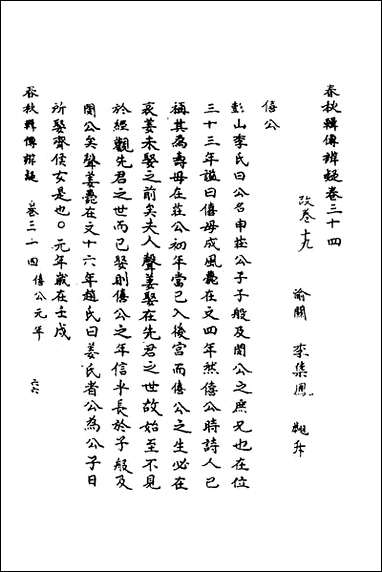 春秋輯傳辨疑卷三十四
改卷十九
渝關 李集鳳 翽升
僖公
彭山李氏曰公名申莊公子子般及閔公之庶兄也在位
三十三年謚曰僖母成風薨在文四年然僖公時詩人已
稱其為壽母在莊公初年當已入後宮而僖公之生必在
哀姜未娶之前矣夫人聲姜娶在先君之世故始至不見
於經觀先君之世而已娶則僖公之年信乎長於子般及
閔公矣聲姜薨在文十六年趙氏曰姜氏者公為公子日
所娶齊侯女是也○元年歲在壬戌
春秋輯傳辨疑 卷三十四 僖公元年 六六